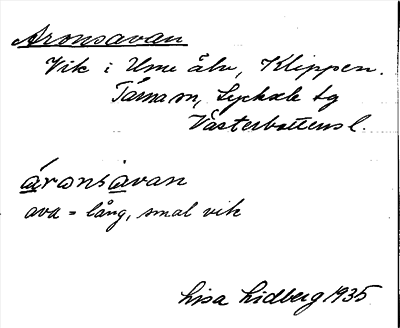 Aronsavan
Vik i Ume älv, Klippen.
Tärna sn, Lycksele tg
Västerbottens l.
áronsavan
ava = lång, smal vik
Lisa Lidberg 1935